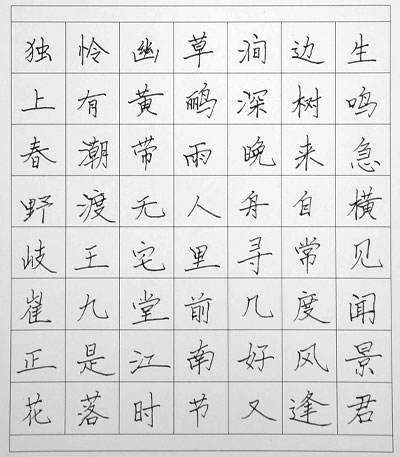 独怜幽草涧边生
上有黄鹂深树鸣
春潮带雨晚来急
野渡无人舟自横
岐王宅里寻常见
崔九堂前几度闻
正是江南好风景
花落时节又逢君